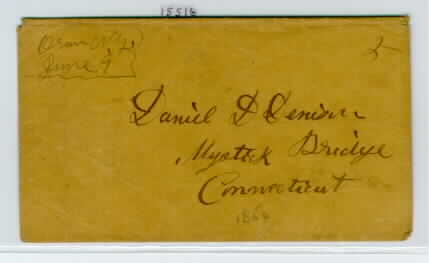 15518
Oran N.Y.
June 9
Daniel D Denison
Mystick Bridge
Connecticut
1864